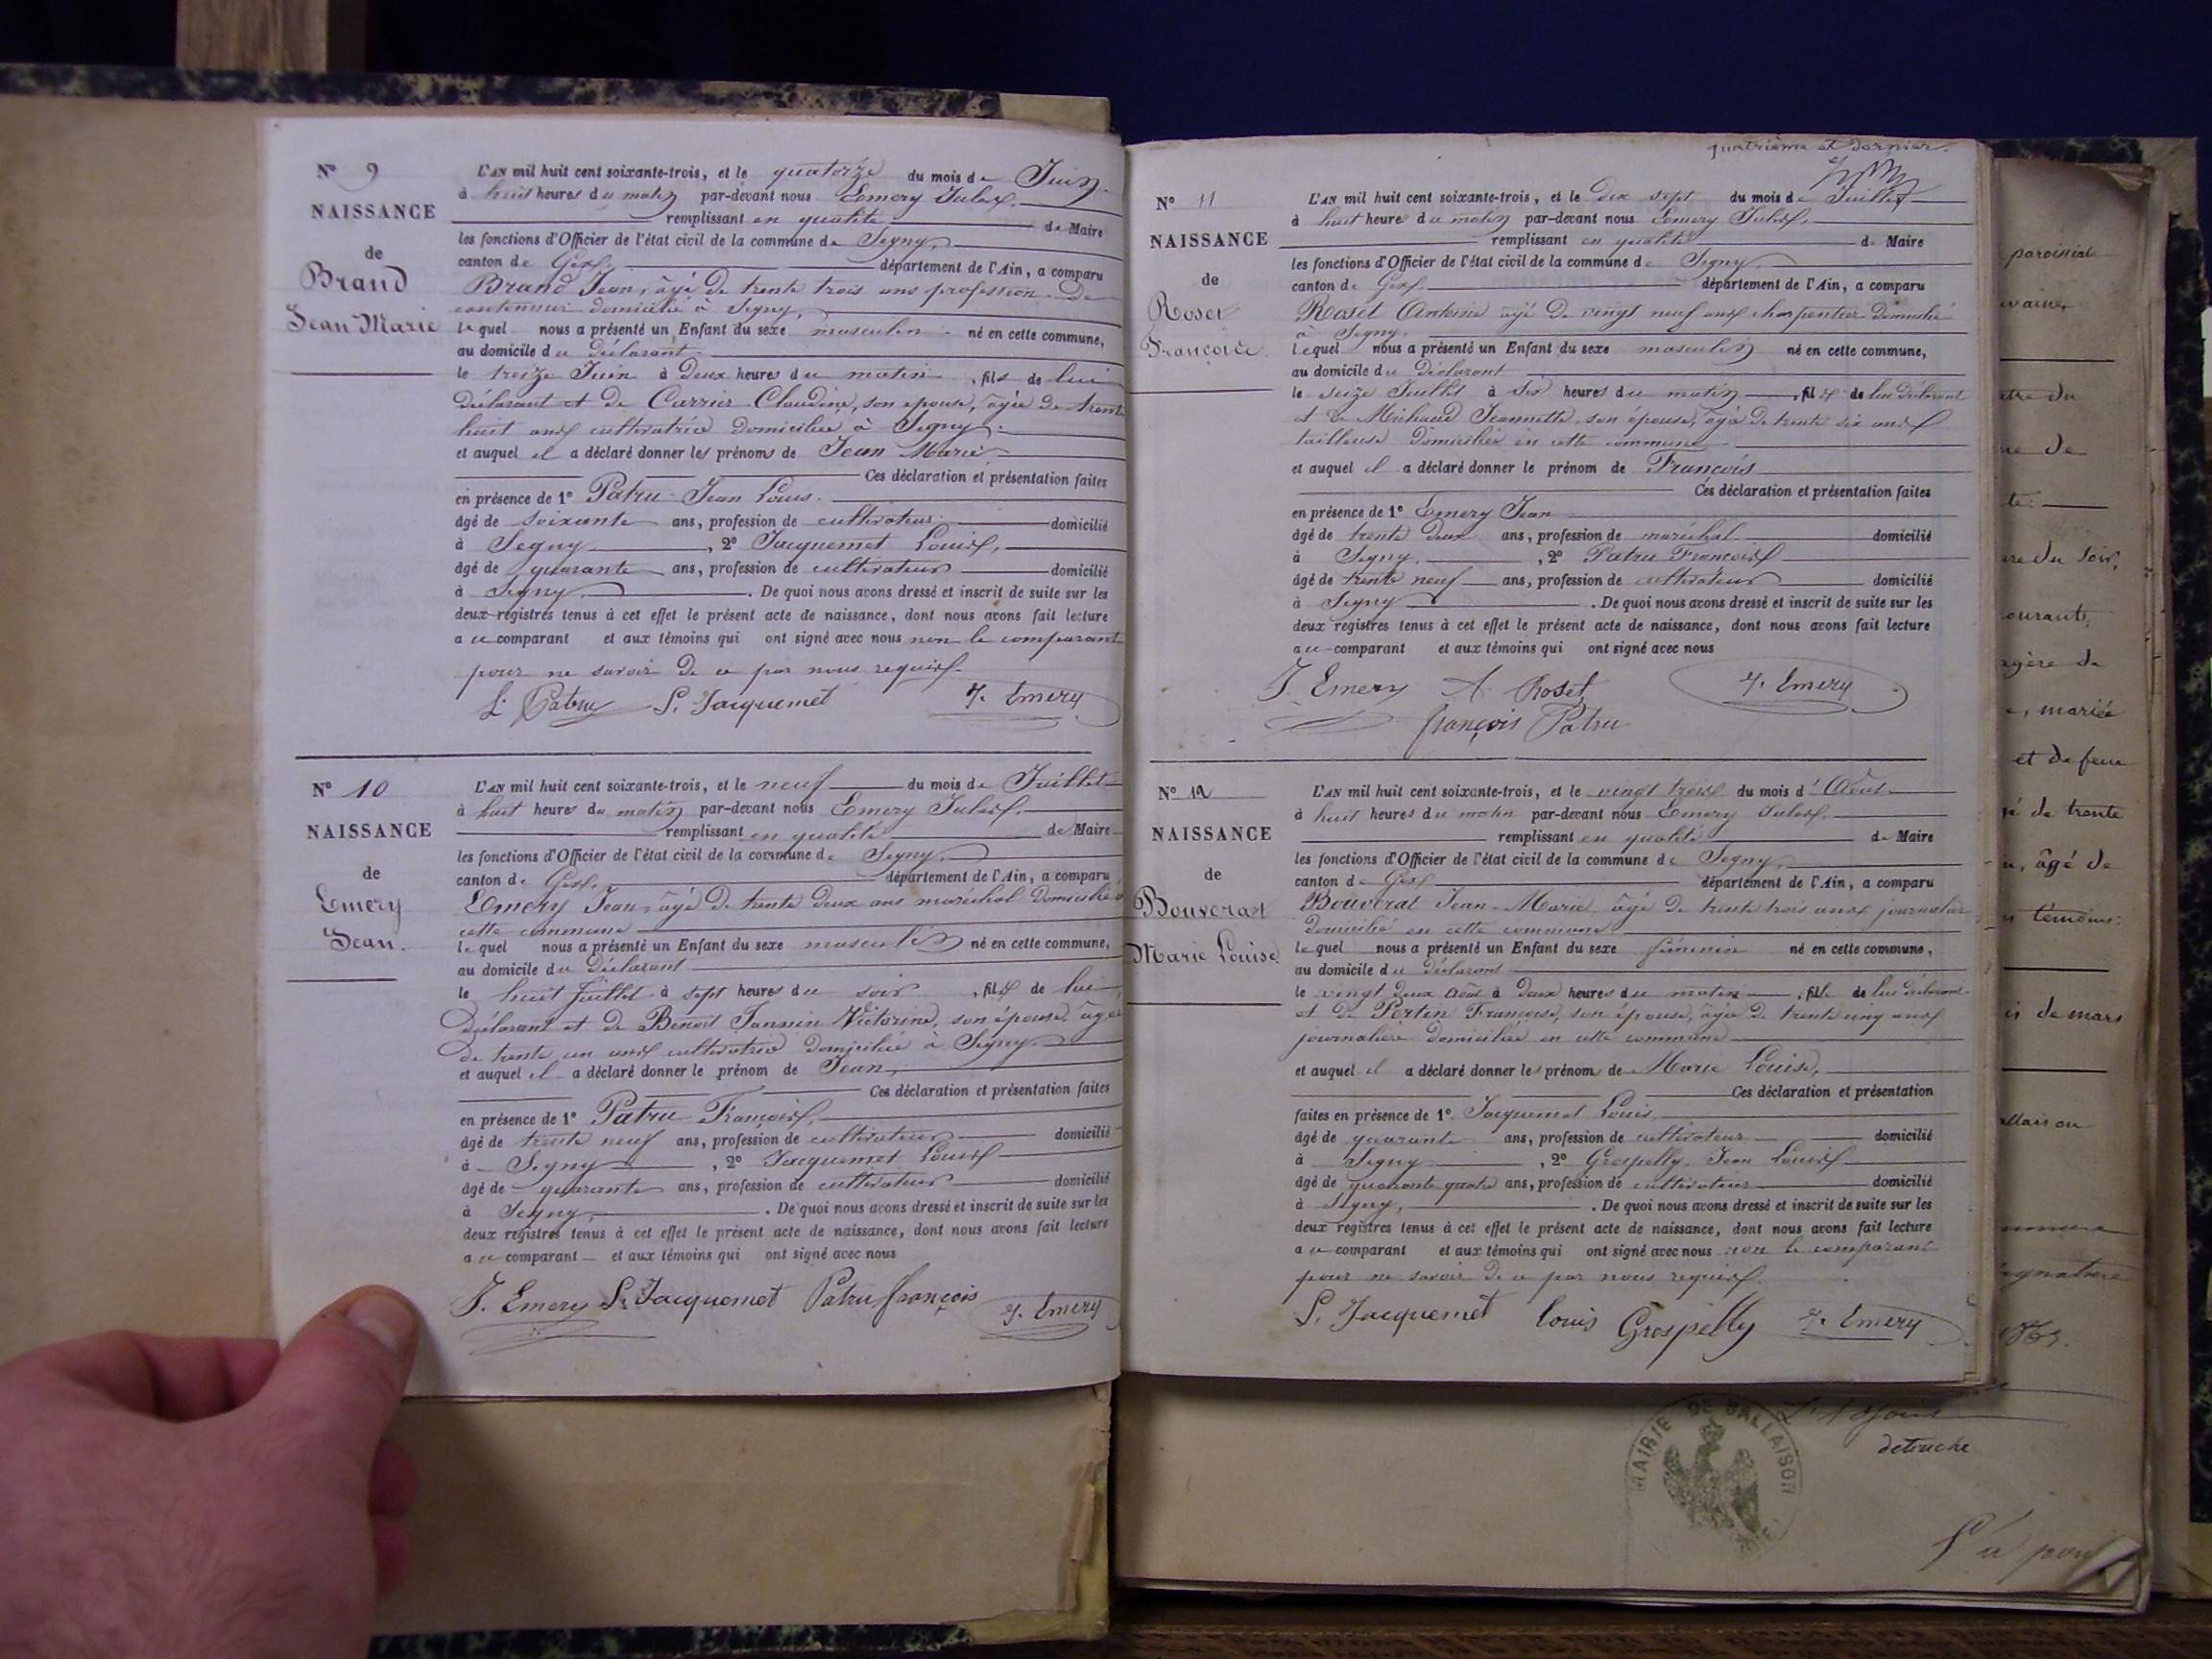 N° 9
NAISSANCE
de
Brand
Jean Marie
L'AN mil huit cent soixante-trois, et le quatorze du mois de Juin
à huit heures du matin par-devant nous Emery Jules,
remplissant en qualité de Maire
les fonctions d'Officier de l'état civil de la commune de Segny,
canton de Gex, département de l'Ain, a comparu
Brand Jean, âgé de trente trois ans profession de
cantonnier domicilié à Segny,
lequel nous a présenté un Enfant du sexe masculin né en cette commune,
au domicile du déclarant
le treize Juin à deux heures du matin, fils de lui
déclarant et de Carrier Claudine, son épouse, âgée de trente
huit ans cultivatrice domiciliée à Segny.
et auquel il a déclaré donner les prénoms de Jean Marie
Ces déclaration et présentation faites
en présence de 1° Patru Jean Louis.
âgé de soixante ans, profession de cultivateur domicilié
à Segny, 2° Jacquemet Louis,
âgé de quarante ans, profession de cultivateur domicilié
à Segny. De quoi nous avons dressé et inscrit de suite sur les
deux registres tenus à cet effet le présent acte de naissance, dont nous avons fait lecture
au comparant et aux témoins qui ont signé avec nous non le comparant
pour ne savoir de ce par nous requis.
L. Patru L. Jacquemet J. Emery
N° 10
NAISSANCE
de
Emery
Jean.
L'AN mil huit cent soixante-trois, et le neuf du mois de Juillet
à huit heures du matin par-devant nous Emery Jules,
remplissant en qualité de Maire
les fonctions d'Officier de l'état civil de la commune de Segny,
canton de Gex, département de l'Ain, a comparu
Emery Jean, âgé de trente deux ans maréchal domicilié
cette commune
lequel nous a présenté un Enfant du sexe masculin né en cette commune,
au domicile du déclarant
le huit Juillet à sept heures du soir, fils de lui
déclarant et de Benoit Victorine, son épouse, âgée
de trente un ans cultivatrice domiciliée à Segny.
et auquel il a déclaré donner le prénom de Jean,
Ces déclaration et présentation faites
en présence de 1° Patru François,
âgé de trente neuf ans, profession de cultivateur domicilié
à Segny, 2° Jacquemet Louis
âgé de quarante ans, profession de cultivateur domicilié
à Segny. De quoi nous avons dressé et inscrit de suite sur les
deux registres tenus à cet effet le présent acte de naissance, dont nous avons fait lecture
au comparant et aux témoins qui ont signé avec nous
J. Emery L. Jacquemet Patru françois J. Emery
quatrième et dernier.
N° 11
NAISSANCE
de
Roset
François
L'AN mil huit cent soixante-trois, et le dix sept du mois de Juillet
à huit heures du matin par-devant nous Emery Jules,
remplissant en qualité de Maire
les fonctions d'Officier de l'état civil de la commune de Segny
canton de Gex. département de l'Ain, a comparu
Roset Antoine âgé de vingt neuf ans charpentier domicilié
à Segny.
lequel nous a présenté un Enfant du sexe masculin né en cette commune,
au domicile du déclarant
le seize Juillet à six heures du matin, fils de lui déclarant
et de Michaud Jeannette son épouse, âgée de trente six ans
tailleuse domiciliée en cette commune
et auquel il a déclaré donner le prénom de François
Ces déclaration et présentation faites
en présence de 1° Emery Jean
âgé de trente deux ans, profession de maréchal domicilié
à Segny, 2° Patru François
âgé de trente neuf ans, profession de cultivateur domicilié
à Segny. De quoi nous avons dressé et inscrit de suite sur les
deux registres tenus à cet effet le présent acte de naissance, dont nous avons fait lecture
au comparant et aux témoins qui ont signé avec nous
J. Emery A. Roset J. Emery
françois Patru
N° 12
NAISSANCE
de
Bouverat
Marie Louise
L'AN mil huit cent soixante-trois, et le vingt trois du mois d'Août
à huit heures du matin par-devant nous Emery Jules,
remplissant en qualité de Maire
les fonctions d'Officier de l'état civil de la commune de Segny,
canton de Gex département de l'Ain, a comparu
Bouverat Jean-Marie âgé de trente trois ans journalier
domicilié en cette commune
lequel nous a présenté un Enfant du sexe féminin né en cette commune,
au domicile du déclarant
le vingt deux Août à deux heures du matin, fille de lui déclarant
et de Pertin Françoise, son épouse, âgée de trente cinq ans
journalière domiciliée en cette commune
et auquel il a déclaré donner les prénoms de Marie Louise,
Ces déclaration et présentation
faites en présence de 1° Jacquemet Louis
âgé de quarante ans, profession de cultivateur domicilié
à Segny, 2° Grospelly Jean Louis
âgé de quarante quatre ans, profession de cultivateur domicilié
à Segny, De quoi nous avons dressé et inscrit de suite sur les
deux registres tenus à cet effet le présent acte de naissance, dont nous avons fait lecture
au comparant et aux témoins qui ont signé avec nous non le comparant
pour ne savoir de ce par nous requis.
L. Jacquemet louis Grospelly J. Emery
paroissiale
re du soir,
mariée
et de feue
gé de trente
n, âgé de
témoins
is de mars
allaison
signature
1863.
détruche
MAIRIE DE BALLAISON